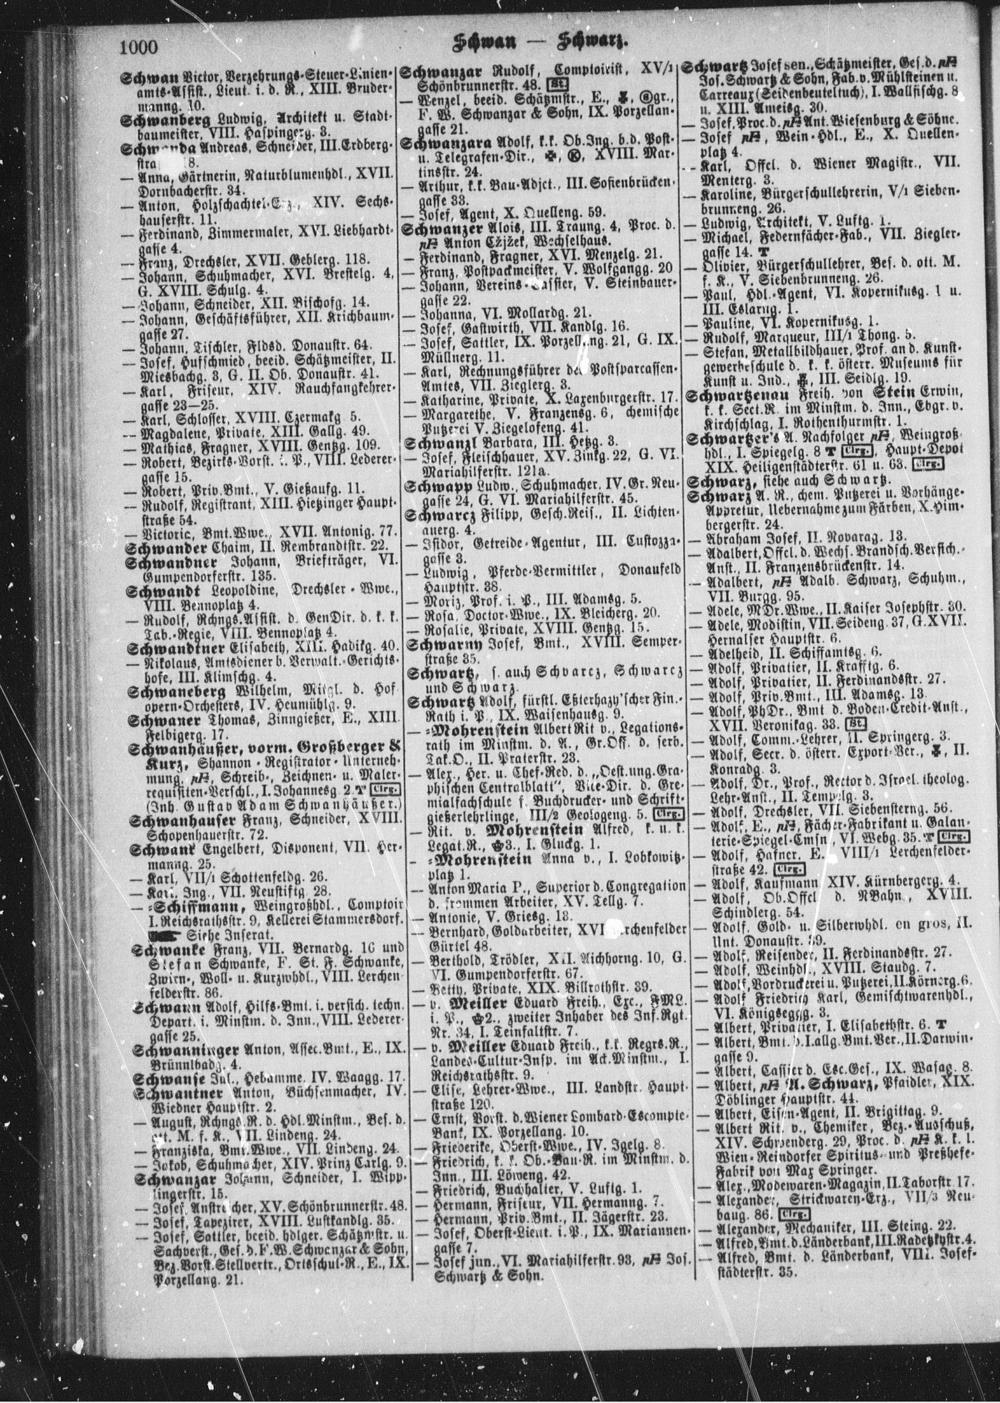 1000
Schwan — Schwarz.
Schwan Victor, Verzehrungs-Steuer-Linien-
amts-Assist., Lieut. i. d. R., XIII. Bruder-
manng. 10.
Schwanberg Ludwig, Architekt u. Stadt-
baumeister, VIII. Haspingerg. 3.
Andreas, Schneider, III. Erdberg-
8.
— Anna, Gärtnerin, Naturblumenhdl., XVII.
Dornbacherstr. 34.
— Anton, Holzschachtel-Erz., XIV. Sechs-
hauserstr. 11.
— Ferdinand, Zimmermaler, XVI. Liebhardt-
gasse 4.
— Franz, Drechsler, XVII. Geblerg. 118.
— Johann, Schuhmacher, XVI. Brestelg. 4,
G. XVIII. Schulg. 4.
— Johann, Schneider, XII. Bischofg. 14.
— Johann, Geschäftsführer, XII. Krichbaum-
gasse 27.
— Johann, Tischler, Fldsd. Donaustr. 64.
— Josef, Hufschmied, beeid. Schätzmeister, II.
Miesbachg. 3, G. II. Ob. Donaustr. 41.
— Karl, Friseur, XIV. Rauchfangkehrer-
gasse 23—25.
— Karl, Schlosser, XVIII. Czermakg. 5.
— Magdalene, Private, XIII. Gallg. 49.
— Mathias, Fragner, XVIII. Gentzg. 109.
— Robert, Bezirks-Vorst. i. P., VIII. Lederer-
gasse 15.
— Robert, Priv. Bmt., V. Gießaufg. 11.
— Rudolf, Registrant, XIII. Hietzinger Haupt-
straße 54.
— Victoric, Bmt. Wwe., XVII. Antonig. 77.
Schwander Chaim, II. Rembrandtstr. 22.
Schwandner Johann, Briefträger, VI.
Gumpendorferstr. 135.
Schwandt Leopoldine, Drechsler-Wwe.,
VIII. Bennoplatz 4.
— Rudolf, Rchngs. Assist. d. Gen Dir. d. k. k.
Tab.-Regie, VIII. Bennoplatz 4.
Schwandtner Elisabeth, XIII. Hadikg. 40.
— Nikolaus, Amtsdiener b. Verwalt.-Gerichts-
hofe, III. Klimschg. 4.
Schwaneberg Wilhelm, Mitgl. d. Hof
opern-Orchesters, IV. Heumühlg. 9.
Schwaner Thomas, Zinngießer, E., XIII.
Felbigerg. 17.
Schwanhäußer, vorm. Großberger &
Kurz, Shannon-Registrator-Unterneh-
mung, pH, Schreib-, Zeichnen- u. Maler-
requisiten-Verschl., I. Johannesg. 2. T Clrg.
(Inh. Gustav Adam Schwanhäußer.)
Schwanhauser Franz, Schneider, XVIII.
Schopenhauerstr. 72.
Schwank Engelbert, Disponent, VII. Her-
manng. 25.
— Karl, VII/1 Schottenfeldg. 26.
— Karl, Ing., VII. Neustiftg. 28.
— =Schiffmann, Weingroßhdl., Comptoir
I. Reichsrathsstr. 9, Kellerei Stammersdorf.
Siehe Inserat.
Schwanke Franz, VII. Bernardg. 16 und
Stefan Schwanke, F. St. F. Schwanke,
Zwirn-, Woll- u. Kurzwhdl., VIII. Lerchen-
felderstr. 86.
Schwann Adolf, Hilfs-Bmt. i. versich. techn.
Depart. i. Minstm. d. Inn., VIII. Lederer-
gasse 25.
Schwanninger Anton, Assec. Bmt., E., IX.
Brünnlbadg. 4.
Schwanse Jul., Hebamme, IV. Waagg. 17.
Schwantner Anton, Büchsenmacher, IV.
Wiedner Hauptstr. 2.
— August, Rchngs. R. d. Hdl. Minstm., Bes. d.
ott. M. f. K., VII. Lindeng. 24.
— Franziska, Bmt. Wwe., VII. Lindeng. 24.
— Jakob, Schuhmacher, XIV. Prinz Carlg. 9.
Schwanzar Johann, Schneider, I. Wipp-
lingerstr. 15.
— Josef, Anstreicher, XV. Schönbrunnerstr. 48.
— Josef, Tapezirer, XVIII. Lustkandlg. 35.
— Josef, Sattler, beeid. hdlger. Schätzmstr. u.
Sachverst., Ges. d. F. W. Schwanzar & Sohn,
Bez. Vorst. Stellvertr., Ortsschul-R., E., IX.
Porzellang. 21.
Schwanzar Rudolf, Comptoirist, XV/1
Schönbrunnerstr. 48. St.
— Wenzel, beeid. Schätzmstr., E., gr.,
F. W. Schwanzar & Sohn, IX. Porzellan-
gasse 21.
Schwanzara Adolf, k. k. Ob. Ing. b. d. Post-
u. Telegrafen-Dir., XVIII. Mar-
tinsstr. 24.
— Arthur, k. k. Bau-Adjct., III. Sofienbrücken-
gasse 33.
— Josef, Agent, X. Quelleng. 59.
Schwanzer Alois, III. Traung. 4, Proc. d.
pH Anton Čžjžek, Wechselhaus.
— Ferdinand, Fragner, XVI. Menzelg. 21.
— Franz, Postpackmeister, V. Wolfgangg. 20
— Johann, Vereins-Cassier, V. Steinbauer-
gasse 22.
— Johanna, VI. Mollardg. 21.
— Josef, Gastwirth, VII. Kandlg. 16.
— Josef, Sattler, IX. Porzellang. 21, G. IX.
Müllnerg. 11.
— Karl, Rechnungsführer des Postsparcassen-
Amtes, VII. Zieglerg. 3.
— Katharine, Private, X. Laxenburgerstr. 17.
— Margarethe, V. Franzensg. 6, chemische
Putzerei V. Ziegelofeng. 41.
Schwanzl Barbara, III. Hetzg. 3.
— Josef, Fleischhauer, XV. Zinkg. 22, G. VI.
Mariahilferstr. 121a.
Schwapp Ludw., Schuhmacher, IV. Gr. Neu-
gasse 24, G. VI. Mariahilferstr. 45.
Schwarcz Filipp, Gesch. Reis., II. Lichten-
auerg. 4.
— Isidor, Getreide-Agentur, III. Custozza-
gasse 3.
— Ludwig, Pferde-Vermittler, Donaufeld
Hauptstr. 38.
— Moriz, Prof. i. P., III. Adamsg. 5.
— Rosa, Doctor-Wwe., IX. Bleicherg. 20.
— Rosalie, Private, XVIII. Gentzg. 15.
Schwarny Josef, Bmt., XVIII. Semper-
straße 35.
Schwartz, s. auch Schvarcz, Schwarcz
und Schwarz.
Schwartz Adolf, fürstl. Esterhazy'scher Fin.-
Rath i. P., IX. Waisenhausg. 9.
— =Mohrenstein Albert Rit v., Legations-
rath im Minstm. d. A., Gr. Off. d. serb.
Tak. O., II. Praterstr. 23.
— Alex., Her. u. Chef-Red. d. „Oest. ung. Gra-
phischen Centralblatt“, Vice-Dir. d. Gre-
mialfachschule f. Buchdrucker- und Schrift-
gießerlehrlinge, III/2 Geologeng. 5. Clrg.
— Rit. v. Mohrenstein Alfred, k. u. k.
Legat. R., 3., I. Gluckg. 1.
— =Mohrenstein Anna v., I. Lobkowitz-
platz 1.
— Anton Maria P., Superior d. Congregation
d. frommen Arbeiter, XV. Tellg. 7.
— Antonie, V. Griesg. 13.
— Bernhard, Goldarbeiter, XVI. Lerchenfelder
Gürtel 48.
— Berthold, Trödler, XII. Aichhorng. 10, G.
VI. Gumpendorferstr. 67.
— Betty, Private, XIX. Billrothstr. 39.
— v. Meiller Eduard Freih., Exc., FML.
i. P., 2., zweiter Inhaber des Inf. Rgt.
Nr. 34, I. Teinfaltstr. 7.
— v. Meiller Eduard Freih., k. k. Regrs. R.,
Landes-Cultur-Insp. im Ack. Minstm., I.
Reichsrathsstr. 9.
— Elise, Lehrer-Wwe., III. Landstr. Haupt-
straße 120.
— Ernst, Vorst. d. Wiener Lombard-Escompte-
Bank, IX. Porzellang. 10.
— Friederike, Oberst-Wwe., IV. Igelg. 8.
— Friedrich, k. k. Ob.-Bau-R. im Minstm. d.
Inn., III. Löweng. 42.
— Friedrich, Buchhalter, V. Luftg. 1.
— Hermann, Friseur, VII. Hermanng. 7.
— Hermann, Priv. Bmt., II. Jägerstr. 23.
— Josef, Oberst-Lieut. i. P., IX. Mariannen-
gasse 7.
— Josef jun., VI. Mariahilferstr. 93, pH Jos.
Schwartz & Sohn.
Schwartz Josef sen., Schätzmeister, Ges. d. pH
Jos. Schwartz & Sohn, Fab. v. Mühlsteinen u.
Carreaux (Seidenbeuteltuch), I. Wallfischg. 8
u. XIII. Ameisg. 30.
— Josef, Proc. d. pH Ant. Wiesenburg & Söhne.
— Josef pH, Wein-Hdl., E., X. Quellen-
platz 4.
— Karl, Offcl. d. Wiener Magistr., VII.
Menterg. 3.
— Karoline, Bürgerschullehrerin, V/1 Sieben-
brunneng. 26.
— Ludwig, Architekt, V. Luftg. 1.
— Michael, Federnfächer-Fab., VII. Ziegler-
gasse 14. T
— Olivier, Bürgerschullehrer, Bes. d. ott. M.
f. K., V. Siebenbrunneng. 26.
— Paul, Hdl.-Agent, VI. Kopernikusg. 1 u.
III. Eslarng. 1.
— Pauline, VI. Kopernikusg. 1.
— Rudolf, Marqueur, III/1 Thong. 5.
— Stefan, Metallbildhauer, Prof. an d. Kunst-
gewerbeschule d. k. k. österr. Museums für
Kunst u. Ind., III. Seidlg. 19.
Schwartzenau Freih. von Stein Erwin,
k. k. Sect. R. im Minstm. d. Inn., Ldgr. v.
Kirchschlag, I. Rothenthurmstr. 1.
Schwartzer's A. Nachfolger pH, Weingroß-
hdl., I. Spiegelg. 8 T Clrg., Haupt-Depot
XIX. Heiligenstädterstr. 61 u. 63. Clrg.
Schwarz, siehe auch Schwartz.
Schwarz A. R., chem. Putzerei u. Vorhänge-
Appretur, Uebernahme zum Färben, X. Him-
bergerstr. 24.
— Abraham Josef, II. Novarag. 13.
— Adalbert, Offcl. d. Wechs. Brandsch. Versich.-
Anst., II. Franzensbrückenstr. 14.
— Adalbert, pH Adalb. Schwarz, Schuhm.,
VII. Burgg. 95.
— Adele, MDr. Wwe., II. Kaiser Josefstr. 30.
— Adele, Modistin, VII. Seideng. 37, G. XVII.
Hernalser Hauptstr. 6.
— Adelheid, II. Schiffamtsg. 6.
— Adolf, Privatier, II. Krafftg. 6.
— Adolf, Privatier, II. Ferdinandsstr. 27.
— Adolf, Priv. Bmt., III. Adamsg. 13.
— Adolf, PhDr., Bmt. d. Boden-Credit-Anst.,
XVII. Veronikag. 33. St.
— Adolf, Comm.-Lehrer, II. Springerg. 3.
— Adolf, Secr. d. österr. Export-Ver., II.
Konradg. 3.
— Adolf, Dr., Prof., Rector d. Israel. theolog.
Lehr-Anst., II. Tempelg. 3.
— Adolf, Drechsler, VII. Siebensterng. 56.
— Adolf, E., pH, Fächer-Fabrikant u. Galan-
terie-Spiegel-Emsn., VI. Webg. 35. T Clrg.
— Adolf, Hafner, E., VIII/1 Lerchenfelder-
straße 42. Clrg.
— Adolf, Kaufmann, XIV. Kürnbergerg. 4.
— Adolf, Ob. Offcl. d. NBahn., XVIII.
Schindlerg. 54.
— Adolf, Gold- u. Silberwhdl. en gros, II.
Unt. Donaustr. 9.
— Adolf, Reisender, II. Ferdinandsstr. 27.
— Adolf, Weinhdl., XVIII. Staudg. 7.
— Adolf, Vordruckerei u. Putzerei, II. Körnerg. 6.
— Adolf Friedrich Karl, Gemischtwarenhdl.,
VI. Königsegg. 3.
— Albert, Privatier, I. Elisabethstr. 6. T
— Albert, Bmt. d. I. allg. Bmt. Ver., II. Darwin-
gasse 9.
— Albert, Cassier d. Esc. Ges., IX. Wasag. 8.
— Albert, pH A. Schwarz, Pfaidler, XIX.
Döblinger Hauptstr. 44.
— Albert, Eisen-Agent, II. Brigittag. 9.
— Albert Rit v., Chemiker, Bez.-Ausschuß,
XIV. Schwenderg. 29, Proc. d. pH K. k. l.
Wien-Reindorfer Spiritus- und Preßhefe-
Fabrik von Max Springer.
— Alex., Modewaren-Magazin, II. Taborstr. 17.
— Alexander, Strickwaren-Erz., VII/3 Neu-
baug. 86. Clrg.
— Alexander, Mechaniker, III. Steing. 22.
— Alfred, Bmt. d. Länderbank, III. Radetzkystr. 4.
— Alfred, Bmt. d. Länderbank, VIII. Josef-
städterstr. 35.